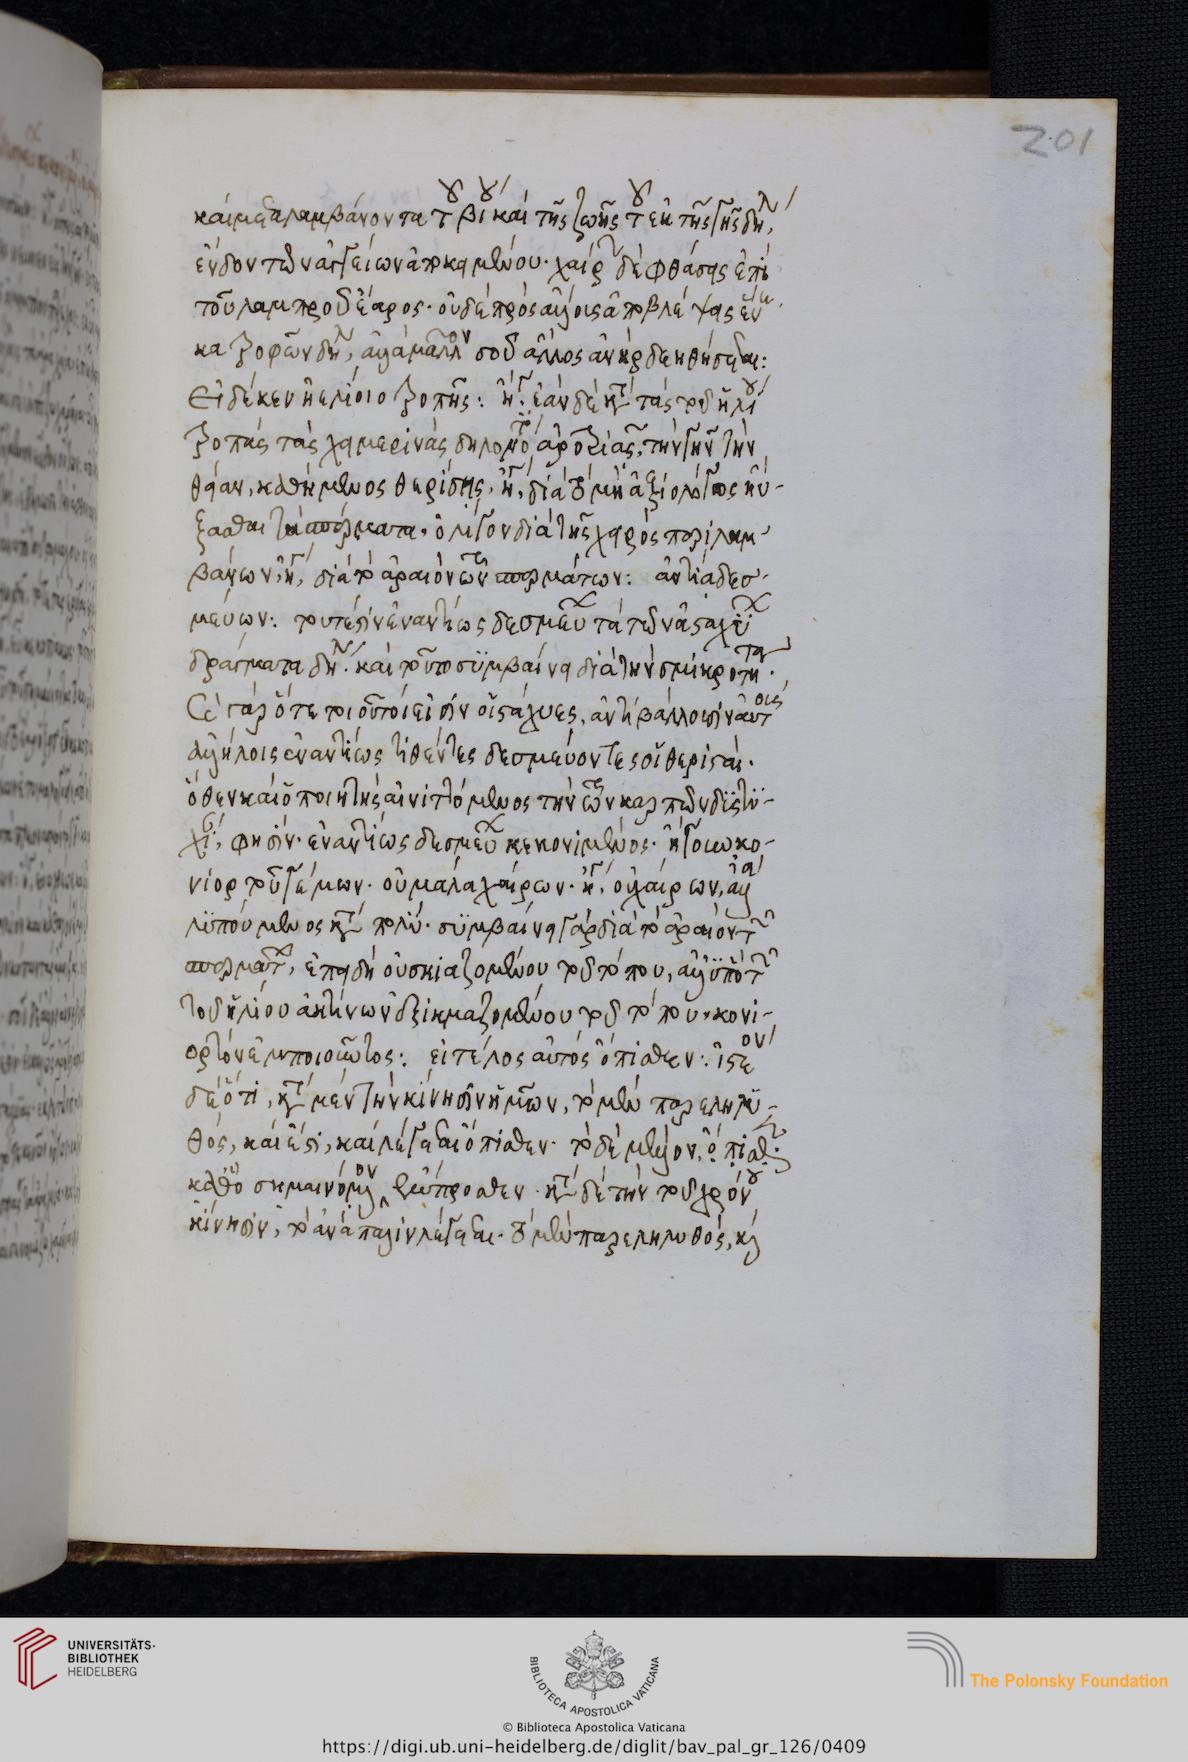 201
καὶ μεταλαμβάνοντα τοῦ βίου καὶ τῆς ζωῆς τοῦ ἐκ τῆς γῆς δηλ
ἔνδον τῶν ἀγγείων ἀποκειμένου. χαίρων δὲ φθάσεις ἐπὶ
τοῦ λαμπροῦ ἔαρος. οὐδὲ πρὸς ἄλλοις ἀποβλέψεις ἕνεκα
τροφῶν δηλ, ἀλλὰ μᾶλλον σοῦ ἄλλος ἀνὴρ δεηθήσεται:
Εἰ δέ κεν ἠελίοιο τροπῆς: ἤγ. ἐὰν δὲ κατὰ τὰς τοῦ ἡλίου
τροπὰς τὰς χειμερινὰς δηλονότι ἀροτριάσῃς, τὴν γῆν τὴν
θείαν, καθήμενος θερίσεις, ἤγ, διὰ τὸ μὴ ἀξιολόγως ηὐ-
ξᾶσθαι τὰ σπέρματα. ὀλίγον διὰ τῆς χειρὸς περιλαμ-
βάνων, ἤγ, διὰ τὸ ἀραιὸν τῶν σπερμάτων: ἀντία δεσ-
μεύων: τουτέστιν ἐναντίως δεσμεύων τὰ τῶν ἀσταχύων
δράγματα δηλ. καὶ τοῦτο συμβαίνει διὰ τὴν σμικρότητα.
ὅτε τοιοῦτοί εἰσιν οἱ στάχυες, ἀντιβάλλουσιν αὐτοὺς
ἀλλήλοις ἐναντίως τιθέντες δεσμεύοντες οἱ θερισταί.
ὅθεν καὶ ὁ ποιητὴς αἰνιττόμενος τὴν τῶν καρπῶν δυστυ-
χίαν, φησίν. ἐναντίως δεσμεύων κεκονιμένος. ἤγουν κο-
νιορτοῦ γέμων. οὐ μάλα χαίρων. ἤγ, οὐ χαίρων, ἀλλὰ
λυπούμενος κατὰ πολύ. συμβαίνει γὰρ διὰ τὸ ἀραιὸν τῶν
σπερμάτων, ἐπειδὴ οὐ σκιαζομένου τοῦ τόπου, ἀλλ' ὑπὸ τῶν
τοῦ ἡλίου ἀκτίνων ἐξικμαζομένου τοῦ τόπου, κονι-
ορτὸν ἐμποιοῦντος: εἰ τέλος αὐτὸς ὄπισθεν: ἰστέον
δὲ ὅτι, κατὰ μὲν τὴν κίνησιν ἡμῶν, τὸ μὲν παρεληλυ-
θός, καὶ ἔστι, καὶ λέγεται ὄπισθεν. τὸ δὲ μέλλον, ὄπισθεν
καθὸ σημαινόμενον ἔμπροσθεν. κατὰ δὲ τὴν τοῦ χρόνου
κίνησιν, τὸ ἀνάπαλιν λέγεται. τὸ μὲν παρεληλυθός, καὶ
UNIVERSITÄTS-
BIBLIOTHEK
HEIDELBERG
BIBLIOTECA APOSTOLICA VATICANA
The Polonsky Foundation
© Biblioteca Apostolica Vaticana
https://digi.ub.uni-heidelberg.de/diglit/bav_pal_gr_126/0409